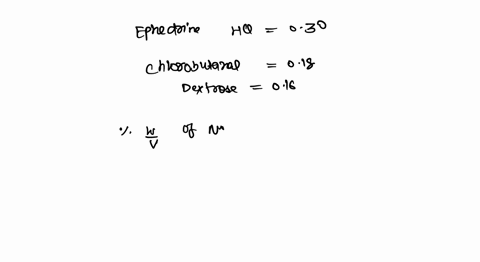 Ephedrine HCl = 0.30
Chlorobutanol = 0.18
Dextrose = 0.16
% W/V of